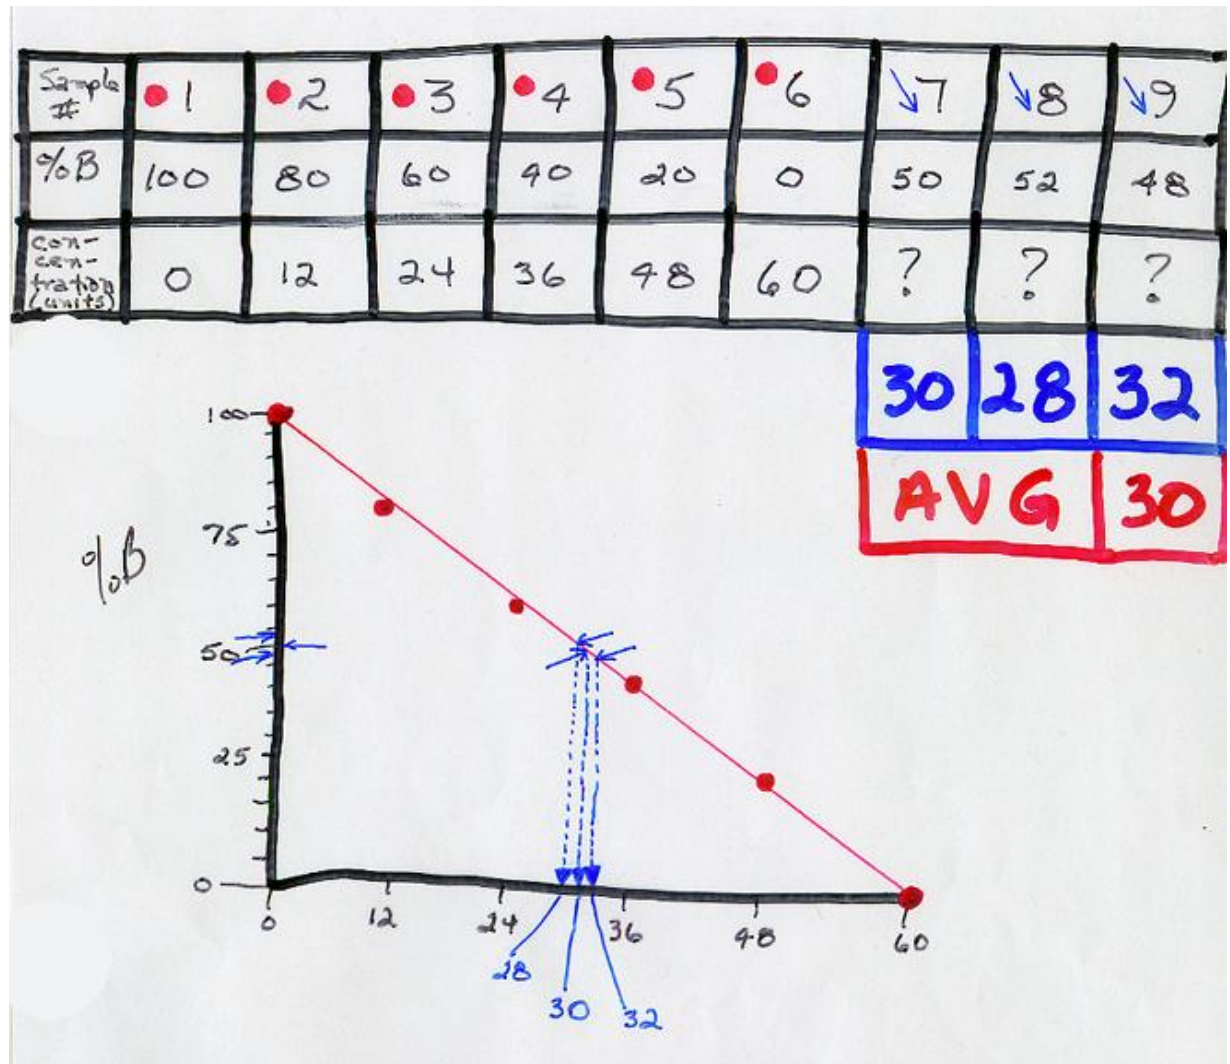 Sample # 1 2 3 4 5 6 7 8 9
%B 100 80 60 40 20 0 50 52 48
con-cen-tration (units) 0 12 24 36 48 60 ? ? ?
30 28 32
AVG 30
100
75
%B
50
25
0
0 12 24 36 48 60
28
30 32